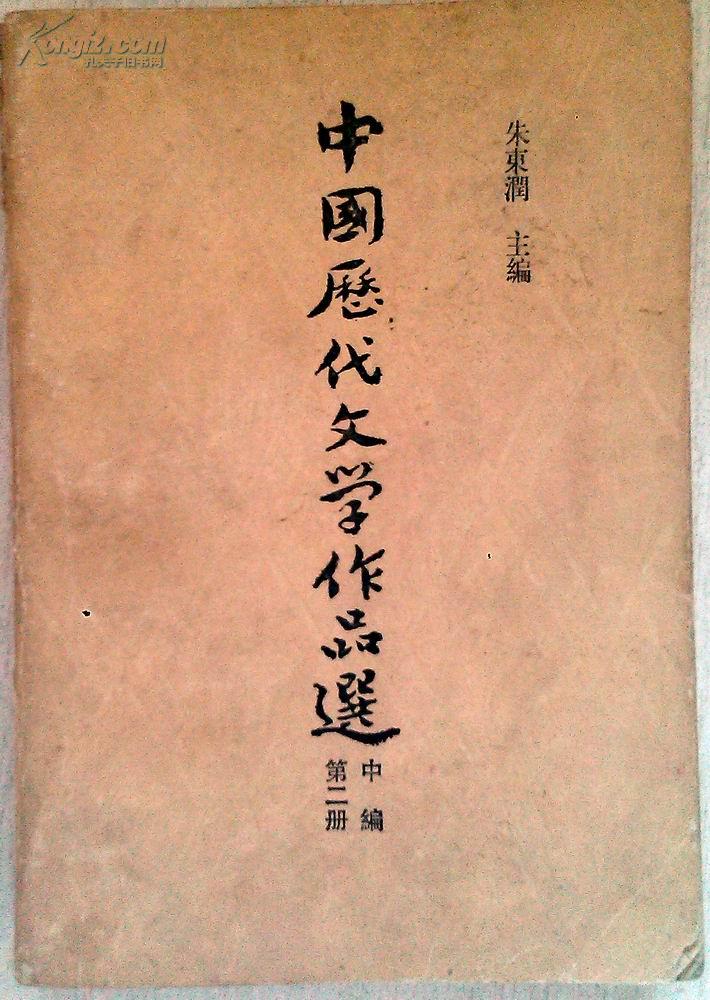 Kongfz.com
孔夫子旧书网
朱東潤 主編
中國歷代文学作品選
中編
第二册